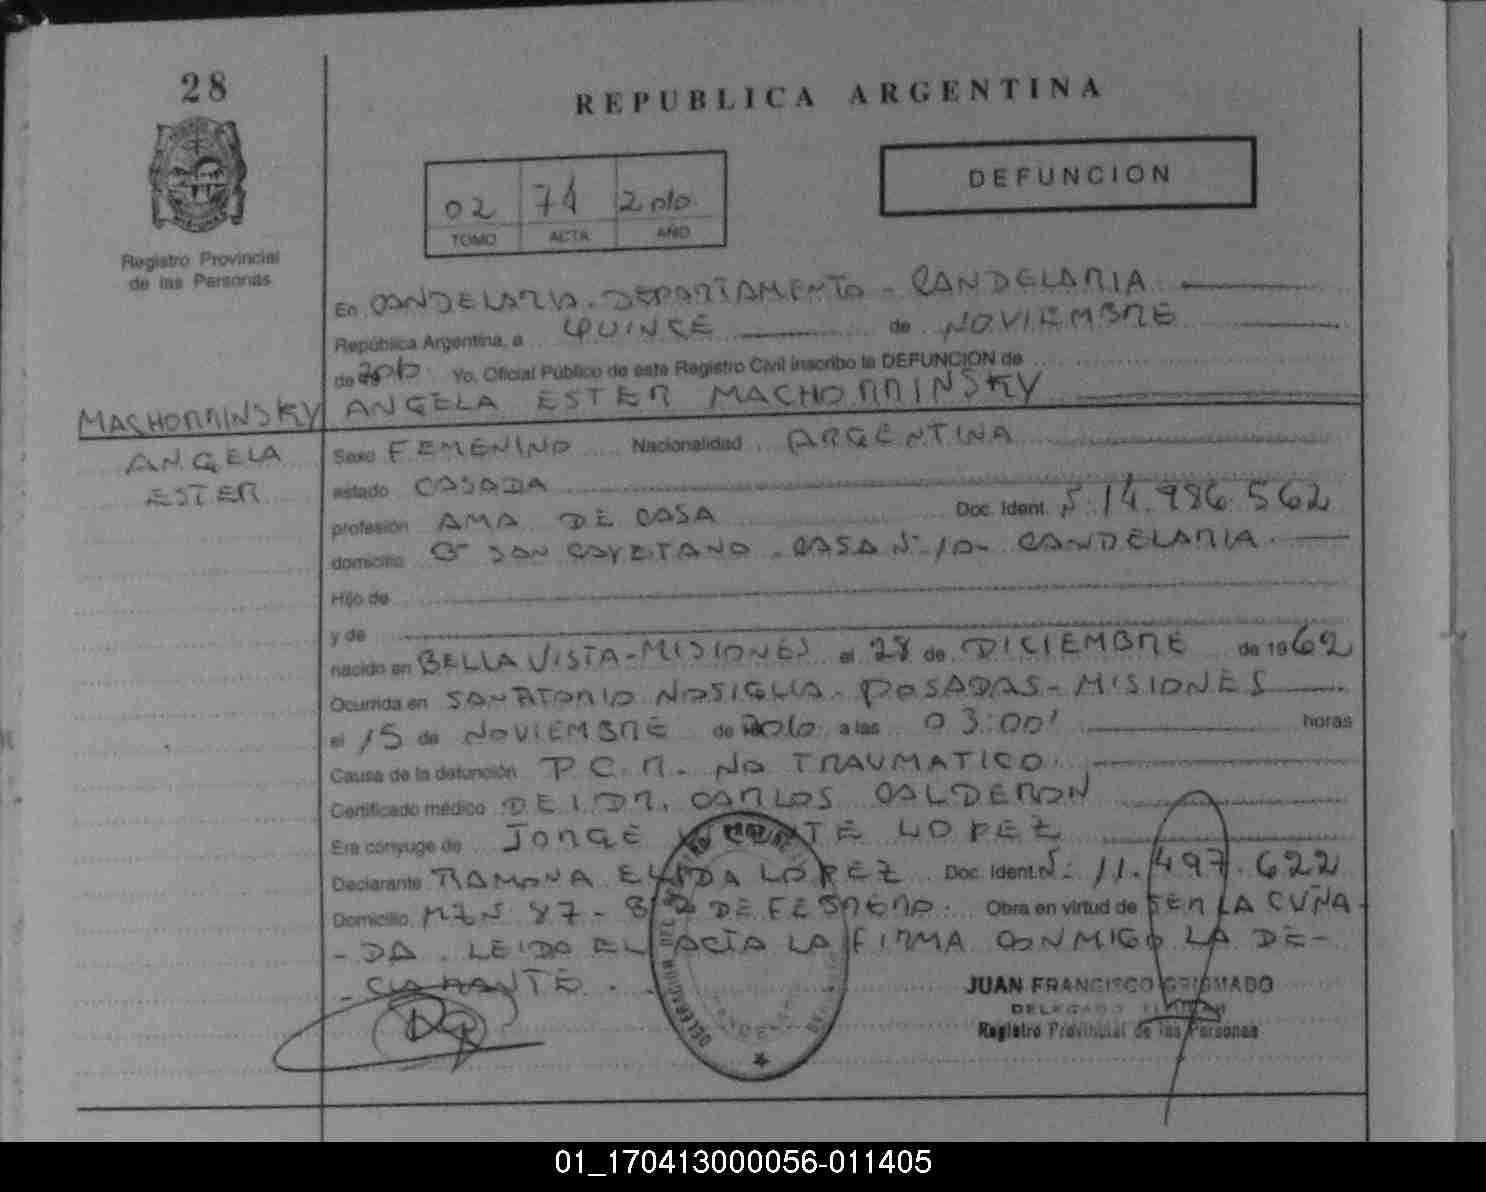 28
REPUBLICA ARGENTINA
DEFUNCION
02 74 2010
TOMO ACTA AÑO
Registro Provincial
de las Personas
En CANDELARIA. DEPARTAMENTO - CANDELARIA
República Argentina, a QUINCE de NOVIEMBRE
de 2010 Yo, Oficial Público de este Registro Civil inscribo la DEFUNCION de
MACHORRINSKY ANGELA ESTER MACHORRINSKY
ANGELA
ESTER
Sexo FEMENINO Nacionalidad ARGENTINA
estado CASADA
profesión AMA DE CASA Doc. Ident. 14.986.562
domicilio Bº SAN CAYETANO - CASA Nº 10 - CANDELARIA
Hijo de
y de
nacido en BELLA VISTA - MISIONES el 28 de DICIEMBRE de 1962
Ocurrida en SANATORIO NOSIGLIA - POSADAS - MISIONES
el 15 de NOVIEMBRE de 2010 a las 03:00' horas
Causa de la defunción P.C.R. NO TRAUMATICO
Certificado médico DEL DR. CARLOS CALDERON
Era cónyuge de JORGE LOPEZ
Declarante RAMONA ELIDA LOPEZ Doc. Ident. Nº: 11.497.622
Domicilio MZ Nº 87 - DE FEBRERO. Obra en virtud de SER LA CUÑA-
- DA. LEIDO EL ACTA LA FIRMA CONMIGO LA DE-
- CLARANTE.
JUAN FRANCISCO GRISMADO
DELEGADO TITULAR
Registro Provincial de las Personas
01_170413000056-011405